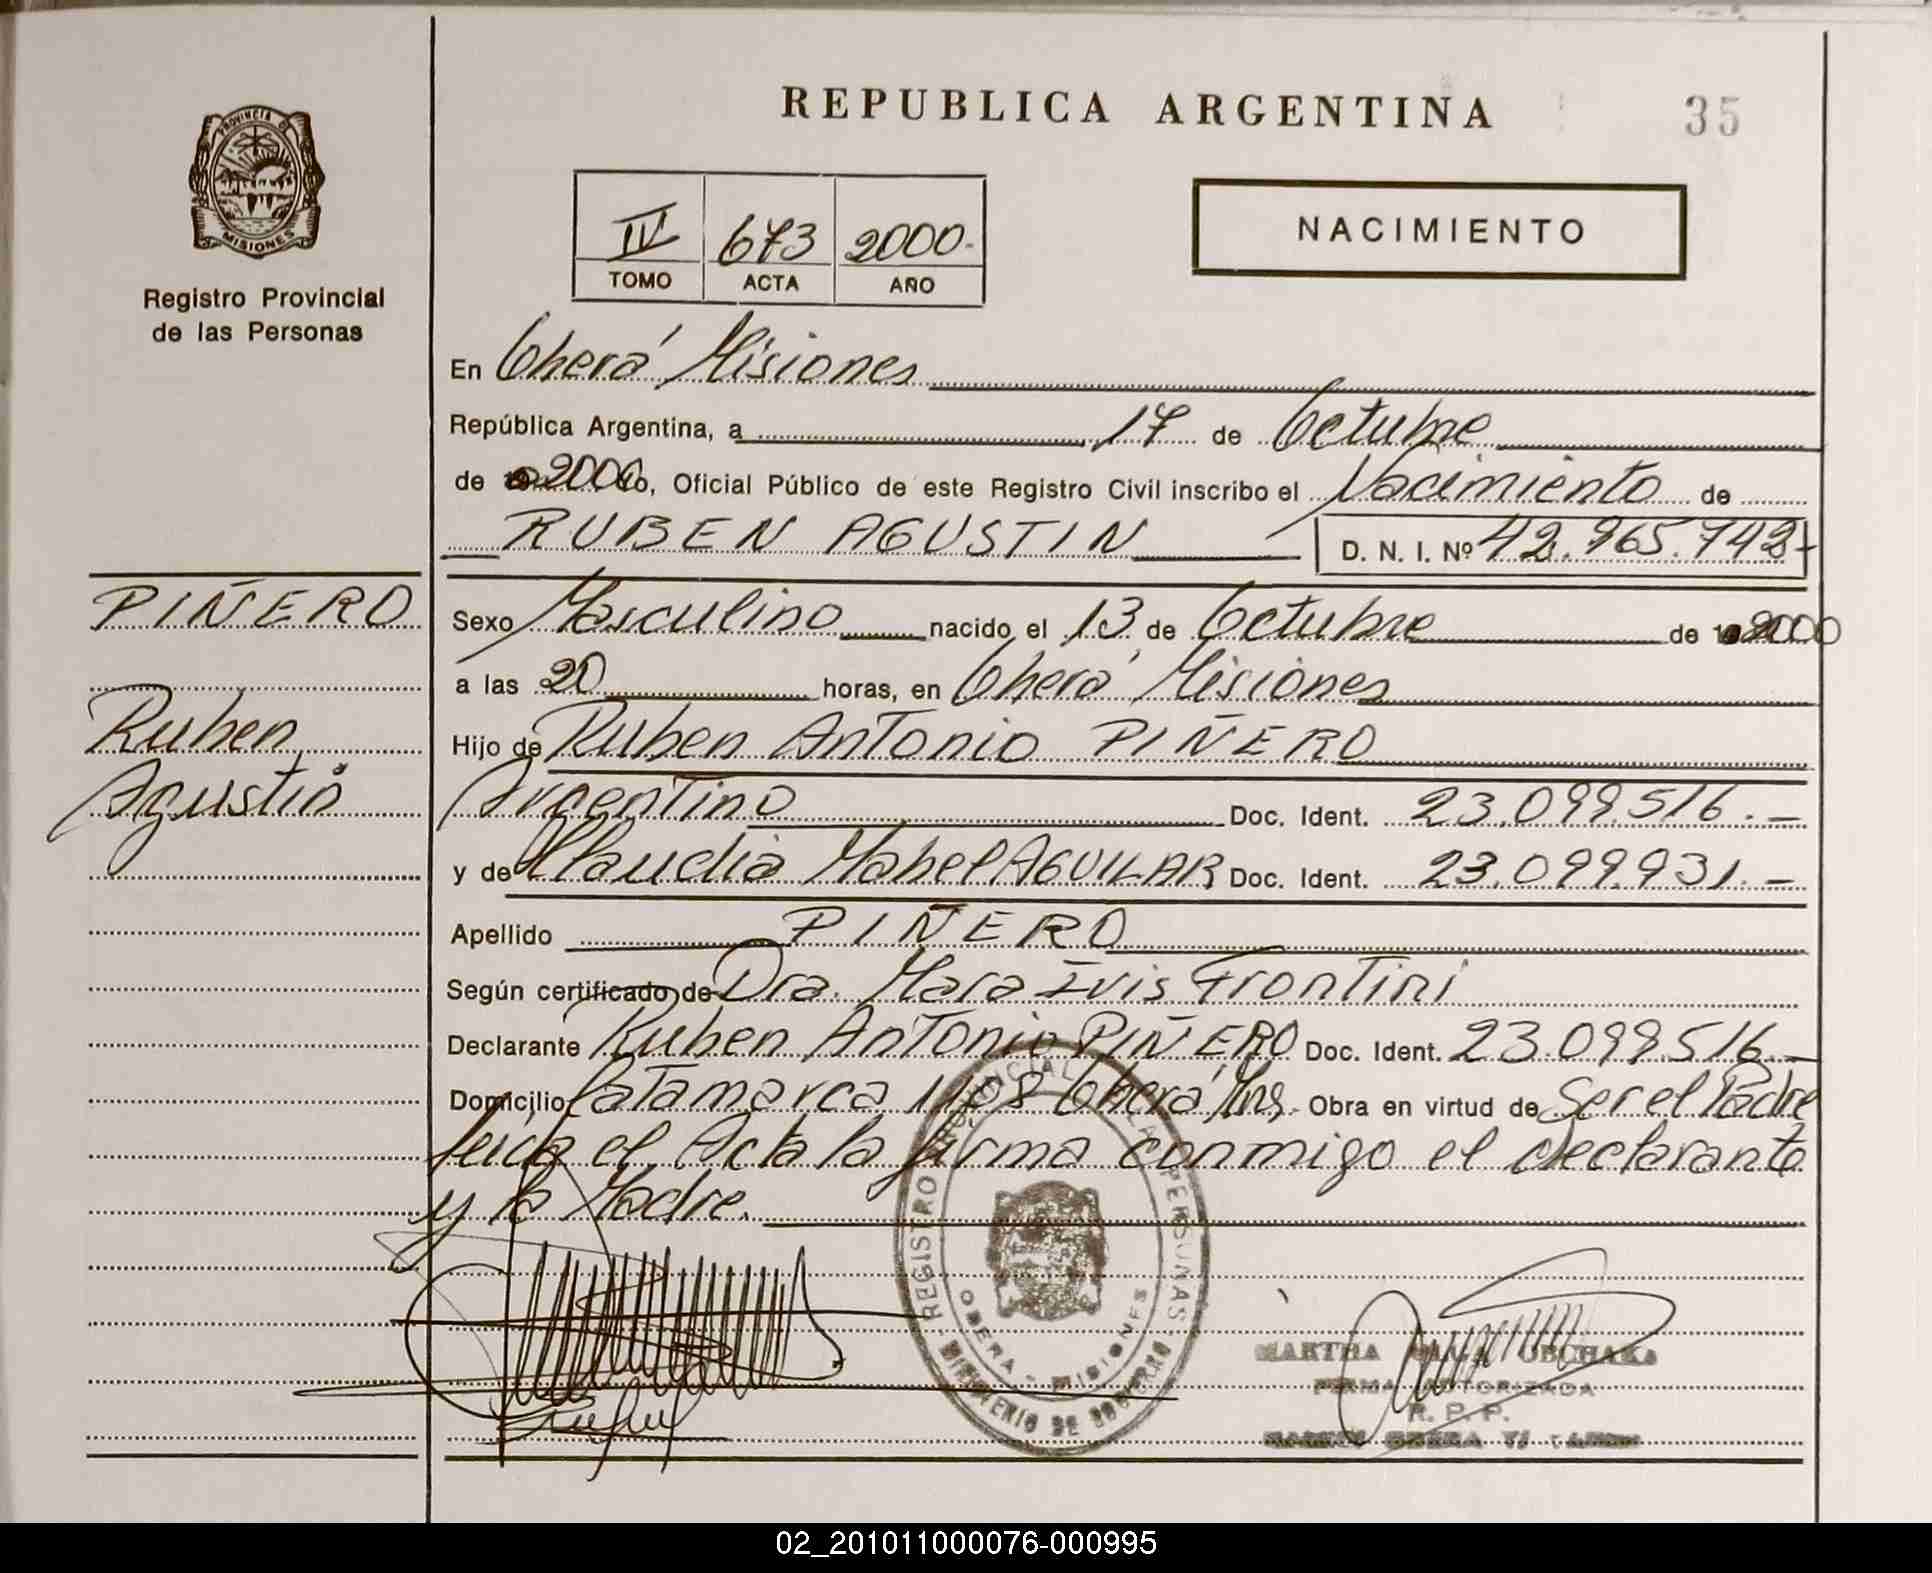 REPUBLICA ARGENTINA
35
PROVINCIA DE
MISIONES
Registro Provincial
de las Personas
IV 673 2000-
TOMO ACTA AÑO
NACIMIENTO
En Oberá Misiones
República Argentina, a 17 de Octubre
de 2000 Yo, Oficial Público de este Registro Civil inscribo el Nacimiento de
RUBEN AGUSTIN D. N. I. Nº 42.965.742-
PIÑERO
Ruben
Agustin
Sexo Masculino nacido el 13 de Octubre de 2000
a las 20 horas, en Oberá Misiones
Hijo de Ruben Antonio PIÑERO
Argentino Doc. Ident. 23.099.516.-
y de Claudia Mabel AGUILAR Doc. Ident. 23.099.931.-
Apellido PIÑERO
Según certificado de Dra. Mara Ivis Frontini
Declarante Ruben Antonio PIÑERO Doc. Ident. 23.099.516.-
Domicilio Catamarca 1108 Oberá Mns. Obra en virtud de Ser el Padre
leída el Acta la firma conmigo el declarante
y la Madre.
REGISTRO PROVINCIAL DE LAS PERSONAS
OBERA - MISIONES
MINISTERIO DE GOBIERNO
MARTHA OLGA
FIRMA AUTORIZADA
R. P. P.
02_201011000076-000995